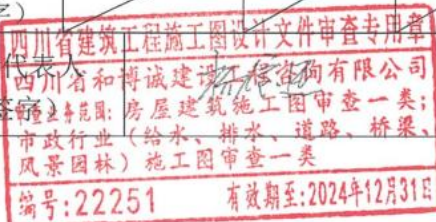 字）
四川省建筑工程施工图设计文件审查专用章
代表人
四川省和博诚建设工程咨询有限公司
签字）
审查业务范围：房屋建筑施工图审查一类；
市政行业（给水、排水、道路、桥梁、
风景园林）施工图审查一类
编号：22251 有效期至：2024年12月31日